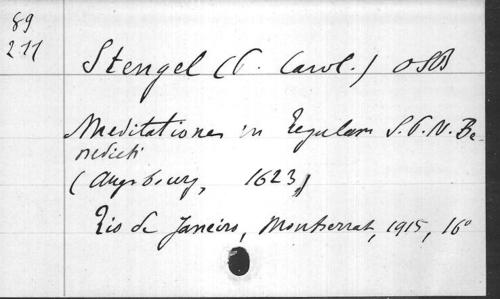 89
211
Stengel (P. Carol.) OSB
Meditationes in Regulam S.P.N. Be-
nedicti
(Augsbourg, 1623,)
Rio de Janeiro, Montserrat, 1915, 16°